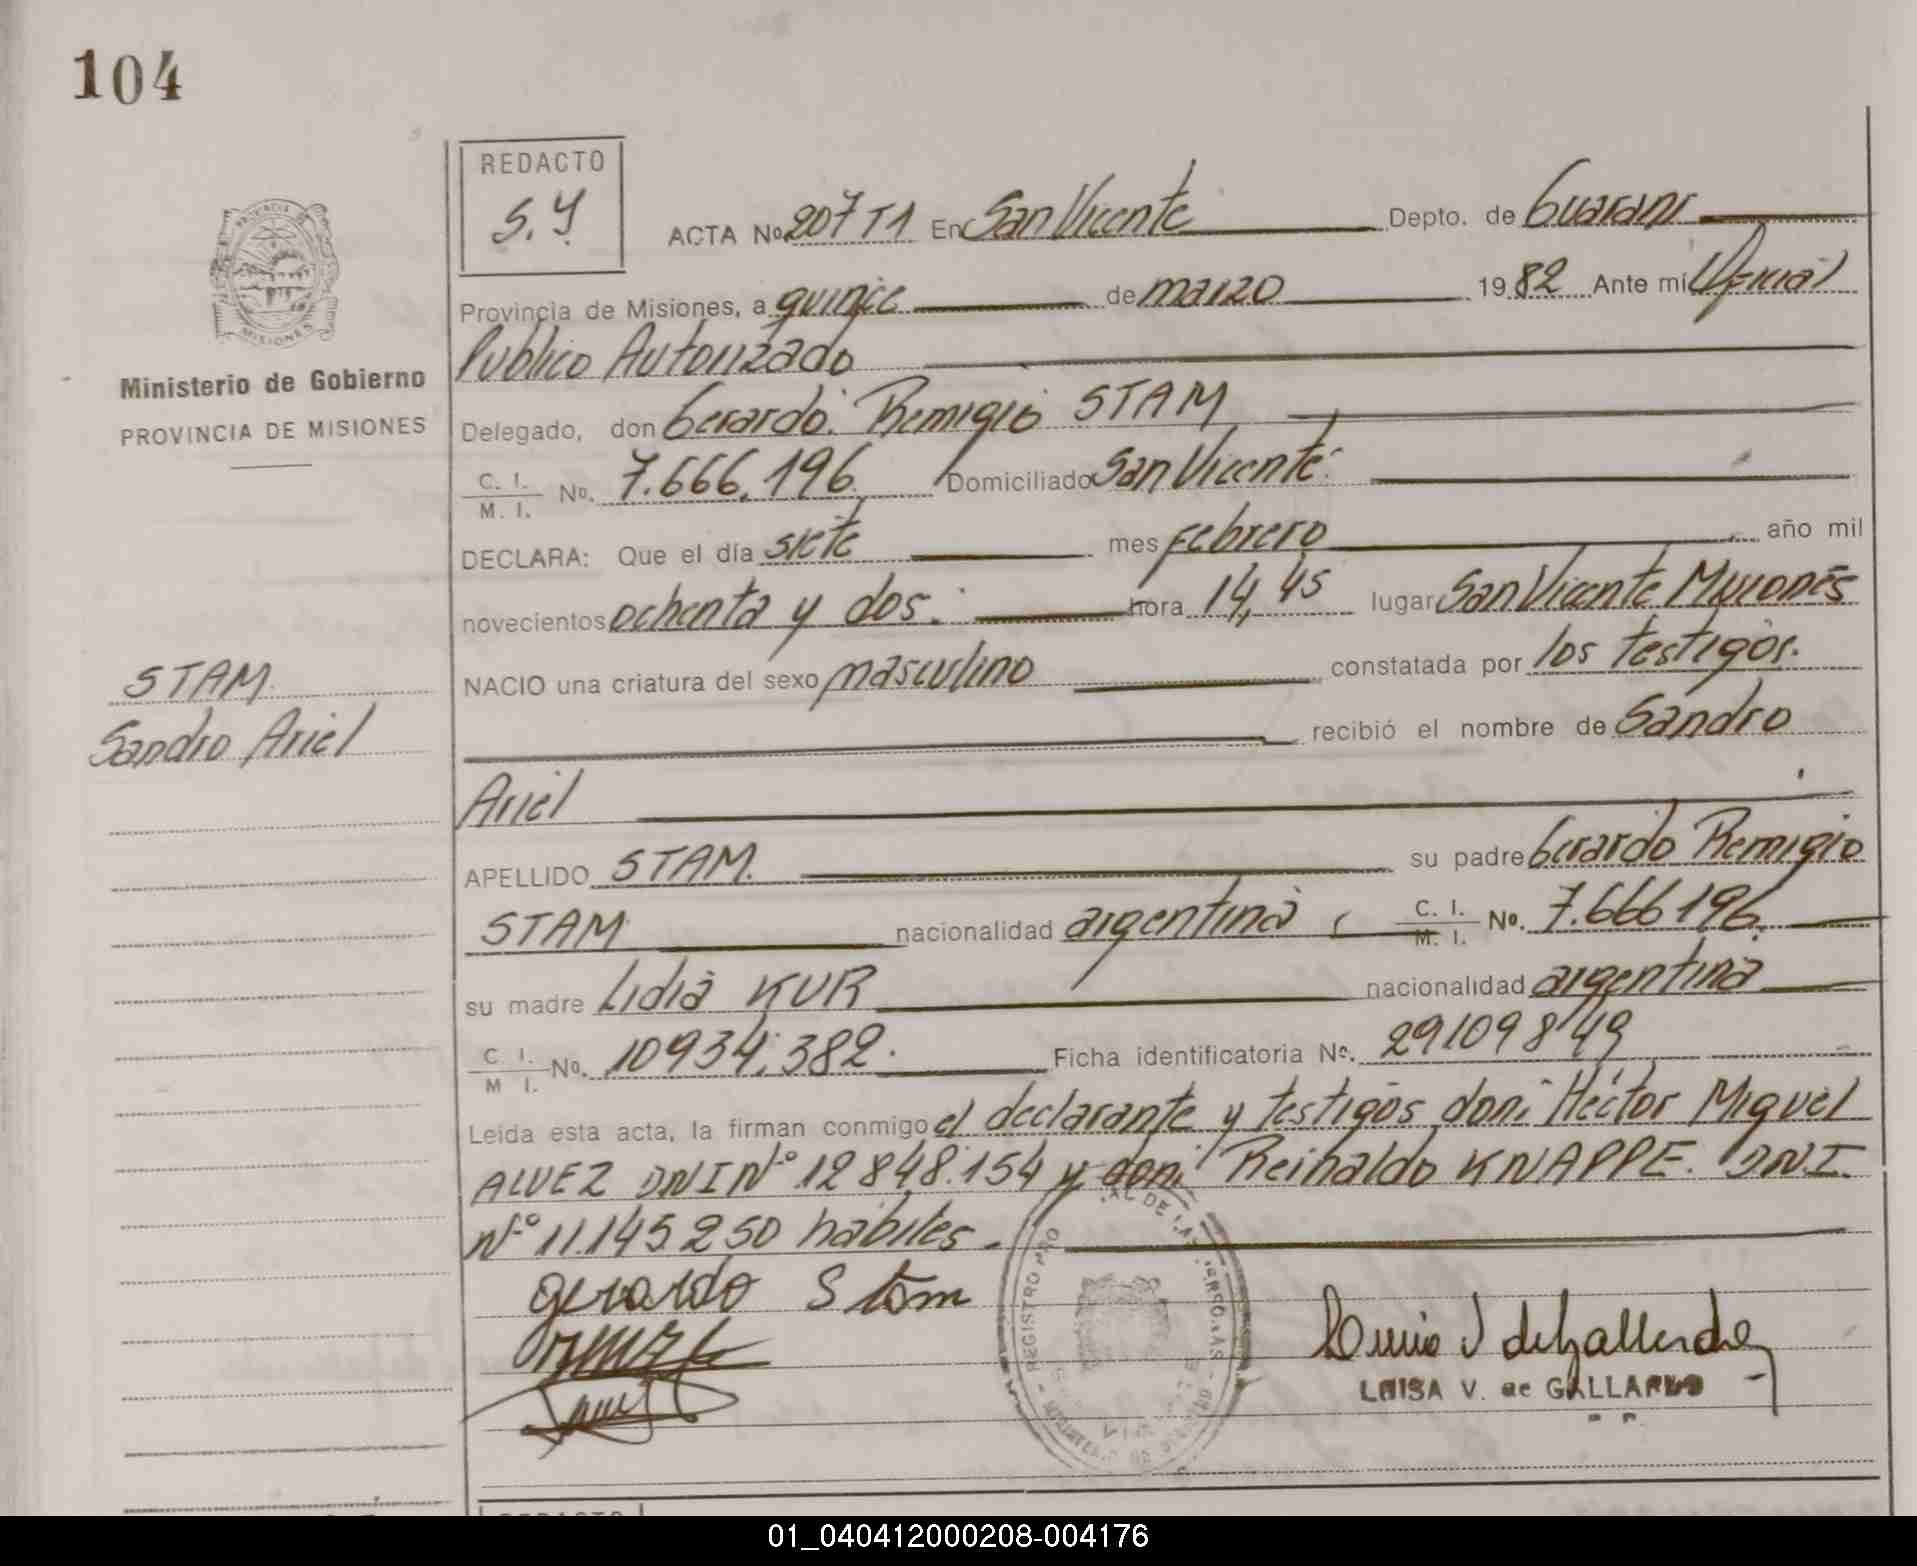 104
REDACTO
S.Y.
ACTA No. 207 T1 En San Vicente Depto. de Guarani
Provincia de Misiones, a quince de marzo 1982 Ante mi Oficial
Publico Autorizado
MISIONES
Ministerio de Gobierno
PROVINCIA DE MISIONES
Delegado, don Gerardo Remigio STAM
C. I. / M. I. No. 7.666.196 Domiciliado San Vicente
DECLARA: Que el día siete mes febrero año mil
novecientos ochenta y dos. hora 14,45 lugar San Vicente Misiones
NACIO una criatura del sexo masculino constatada por los testigos.
STAM
Sandro Ariel
recibió el nombre de Sandro
Ariel
APELLIDO STAM. su padre Gerardo Remigio
STAM nacionalidad argentina C. I. / M. I. No. 7.666196.
su madre Lidia KUR nacionalidad argentina
C I. / M I. No. 10934.382. Ficha identificatoria No. 29109849
Leída esta acta, la firman conmigo el declarante y testigos don: Héctor Miguel
ALVEZ DNI Nº 12848.154 y don: Reinaldo KNAPPE. DNI.
Nº 11.145250 habiles.
Gerardo Stam
REGISTRO
DE LAS PERSONAS
LUISA V. de GALLARDO
REDACTO
01_040412000208-004176